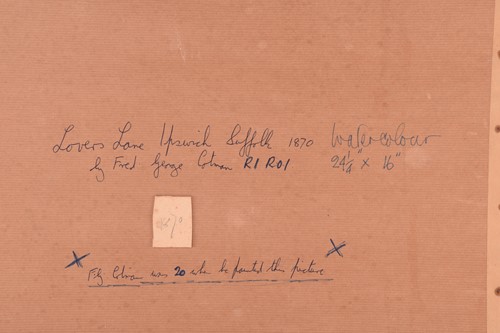 Lovers Lane Ipswich Suffolk 1870 Watercolour
by Fred George Cotman RI ROI 24½" x 16"
Cotman was 20 when he painted this picture